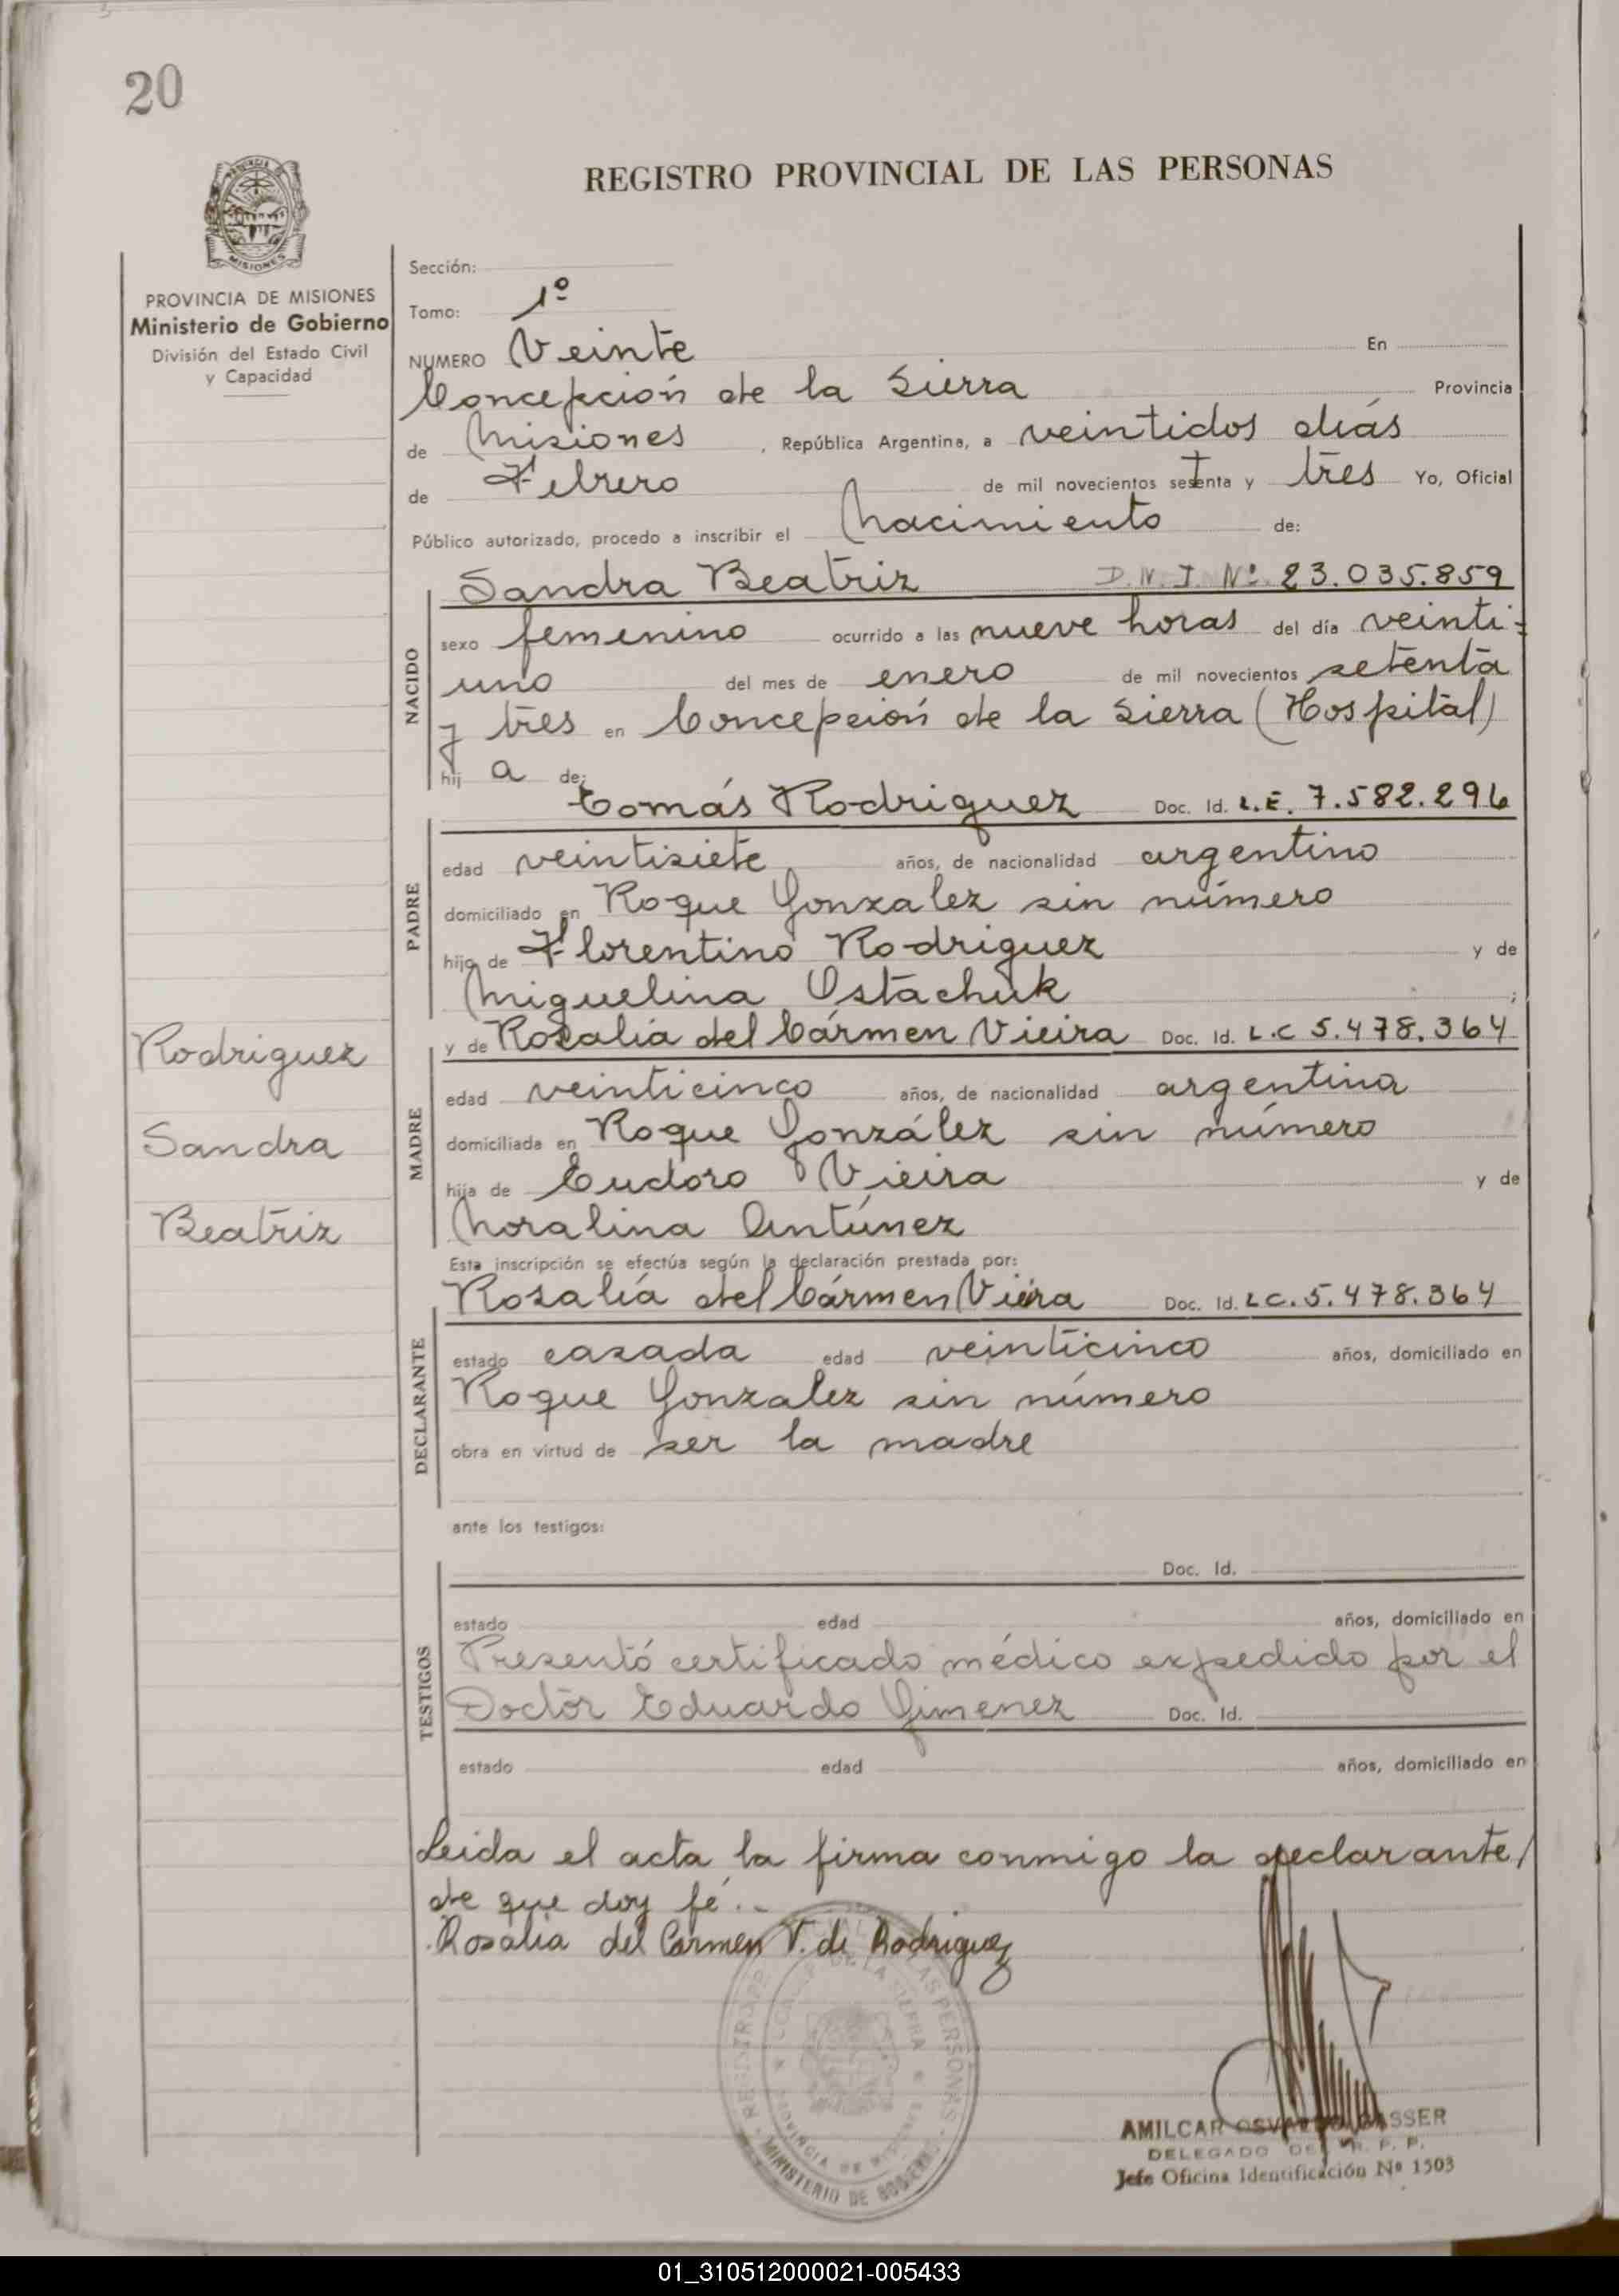 20
REGISTRO PROVINCIAL DE LAS PERSONAS
MISIONES
PROVINCIA DE MISIONES
Ministerio de Gobierno
División del Estado Civil
y Capacidad
Sección:
Tomo: 1º
NUMERO Veinte En
Concepción de la Sierra Provincia
de Misiones, República Argentina, a veintidos días
de Febrero de mil novecientos setenta y tres Yo, Oficial
Público autorizado, procedo a inscribir el Nacimiento de:
NACIDO
Sandra Beatriz D.N.I. Nº 23.035.859
sexo femenino ocurrido a las nueve horas del día veinti-
uno del mes de enero de mil novecientos setenta
y tres en Concepción de la Sierra (Hospital)
hij a de:
PADRE
Tomás Rodriguez Doc. Id. L.E. 7.582.296
edad veintisiete años, de nacionalidad argentino
domiciliado en Roque Gonzalez sin número
hijo de Florentino Rodriguez y de
Miguelina Ostachuk ;
Rodriguez
Sandra
Beatriz
MADRE
y de Rosalía del Cármen Vieira Doc. Id. L.C 5.478.364
edad veinticinco años, de nacionalidad argentina
domiciliada en Roque González sin número
hija de Eudoro Vieira y de
Moralina Antúnez
Esta inscripción se efectúa según la declaración prestada por:
DECLARANTE
Rosalía del Cármen Vieira Doc. Id. LC. 5.478.364
estado casada edad veinticinco años, domiciliado en
Roque Gonzalez sin número
obra en virtud de ser la madre
ante los testigos:
TESTIGOS
Doc. Id.
estado edad años, domiciliado en
Presentó certificado médico expedido por el
Doctor Eduardo Gimenez Doc. Id.
estado edad años, domiciliado en
Leida el acta la firma conmigo la declarante,
de que doy fé..
Rosalia del Carmen V. de Rodriguez
REGISTRO LAS PERSONAS
DE LA SIERRA
PROVINCIA DE MISIONES
MINISTERIO DE GOBIERNO
AMILCAR OSVALDO GASSER
DELEGADO DEL R. P. P.
Jefe Oficina Identificación Nº 1503
01_310512000021-005433